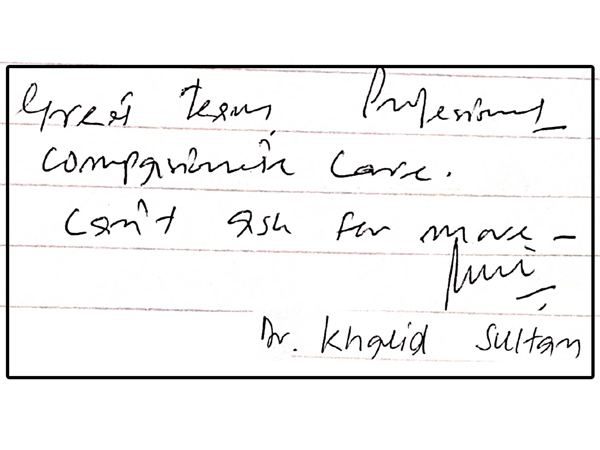 Great team, Professional
compassionate care.
Can't ask for more -
Dr. Khalid Sultan